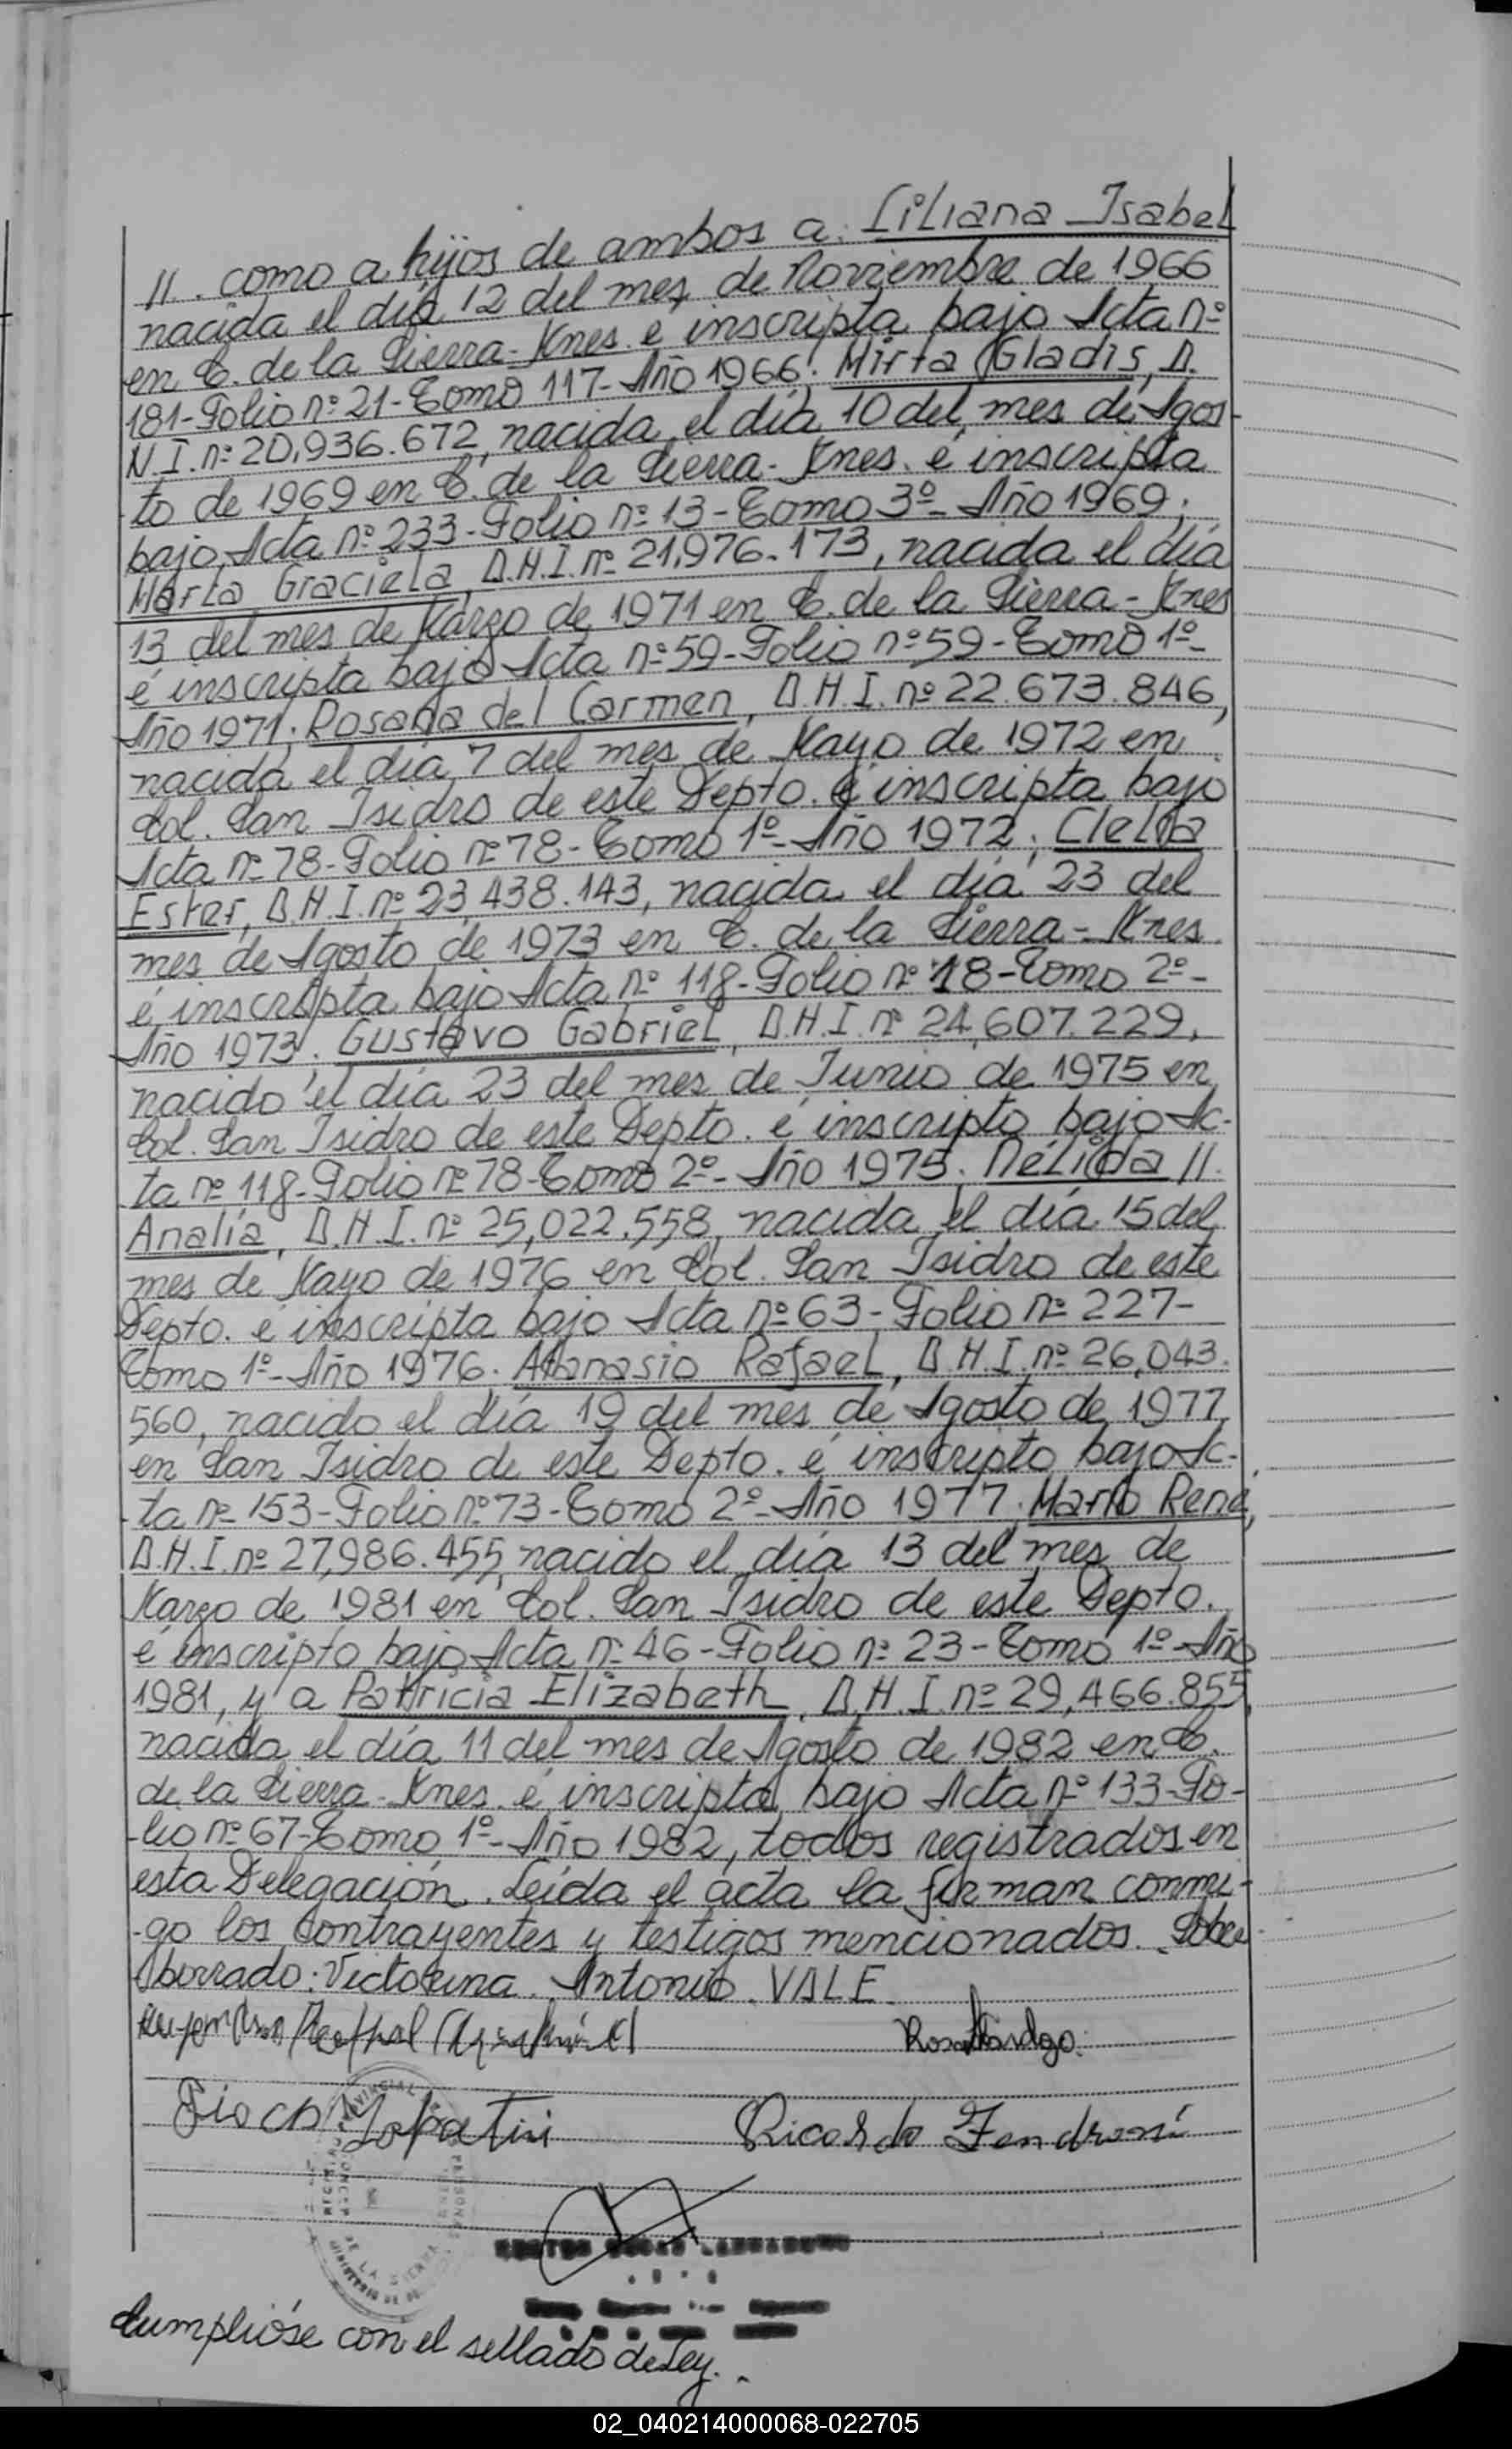 11. como a hijos de ambos a: Liliana Isabel
nacida el día 12 del mes de Noviembre de 1966
en C. de la Sierra-Mnes. é inscripta bajo Acta nº
181-Folio nº 21-Tomo 117-Año 1966; Mirta Gladis, D.
N.I. nº 20.936.672, nacida el día 10 del mes de Agos-
-to de 1969 en C. de la Sierra-Mnes. é inscripta
bajo Acta nº 233-Folio nº 13-Tomo 3º-Año 1969;
Marta Graciela, D.N.I. nº 21.976.173, nacida el día
13 del mes de Marzo de 1971 en C. de la Sierra-Mnes
é inscripta bajo Acta nº 59-Folio nº 59-Tomo 1º-
Año 1971; Rosana del Carmen, D.N.I. nº 22.673.846,
nacida el día 7 del mes de Mayo de 1972 en
Col. San Isidro de este Depto. é inscripta bajo
Acta nº 78-Folio nº 78-Tomo 1º-Año 1972; Clelia
Ester, D.N.I. nº 23.438.143, nacida el día 23 del
mes de Agosto de 1973 en C. de la Sierra-Mnes.
é inscripta bajo Acta nº 118-Folio nº 18-Tomo 2º-
Año 1973; Gustavo Gabriel, D.N.I. nº 24.607.229,
nacido el día 23 del mes de Junio de 1975 en
Col. San Isidro de este Depto. é inscripto bajo Ac-
ta nº 118-Folio nº 78-Tomo 2º-Año 1975; Nélida 11.
Analía, D.N.I. nº 25,022.558, nacida el día 15 del
mes de Mayo de 1976 en Col. San Isidro de este
Depto. é inscripta bajo Acta nº 63-Folio nº 227-
Tomo 1º-Año 1976; Atanasio Rafael, D.N.I. nº 26,043.
560, nacido el día 19 del mes de Agosto de 1977,
en San Isidro de este Depto. é inscripto bajo Ac-
-ta nº 153-Folio nº 73-Tomo 2º-Año 1977; Mario René,
D.N.I. nº 27,986.455, nacido el día 13 del mes de
Marzo de 1981 en Col. San Isidro de este Depto.
é inscripto bajo Acta nº 46-Folio nº 23-Tomo 1º-Año
1981, y a Patricia Elizabeth, D.N.I. nº 29,466.855,
nacida el día 11 del mes de Agosto de 1982 en C.
de la Sierra-Mnes. é inscripta bajo Acta nº 133-Fo-
-lio nº 67-Tomo 1º-Año 1982, todos registrados en
esta Delegación. Leída el acta la firman conmi-
-go los contrayentes y testigos mencionados. Sobre
borrado: Victorina. Antonio. VALE.
Ricardo
Cumplióse con el sellado de Ley.
02_040214000068-022705